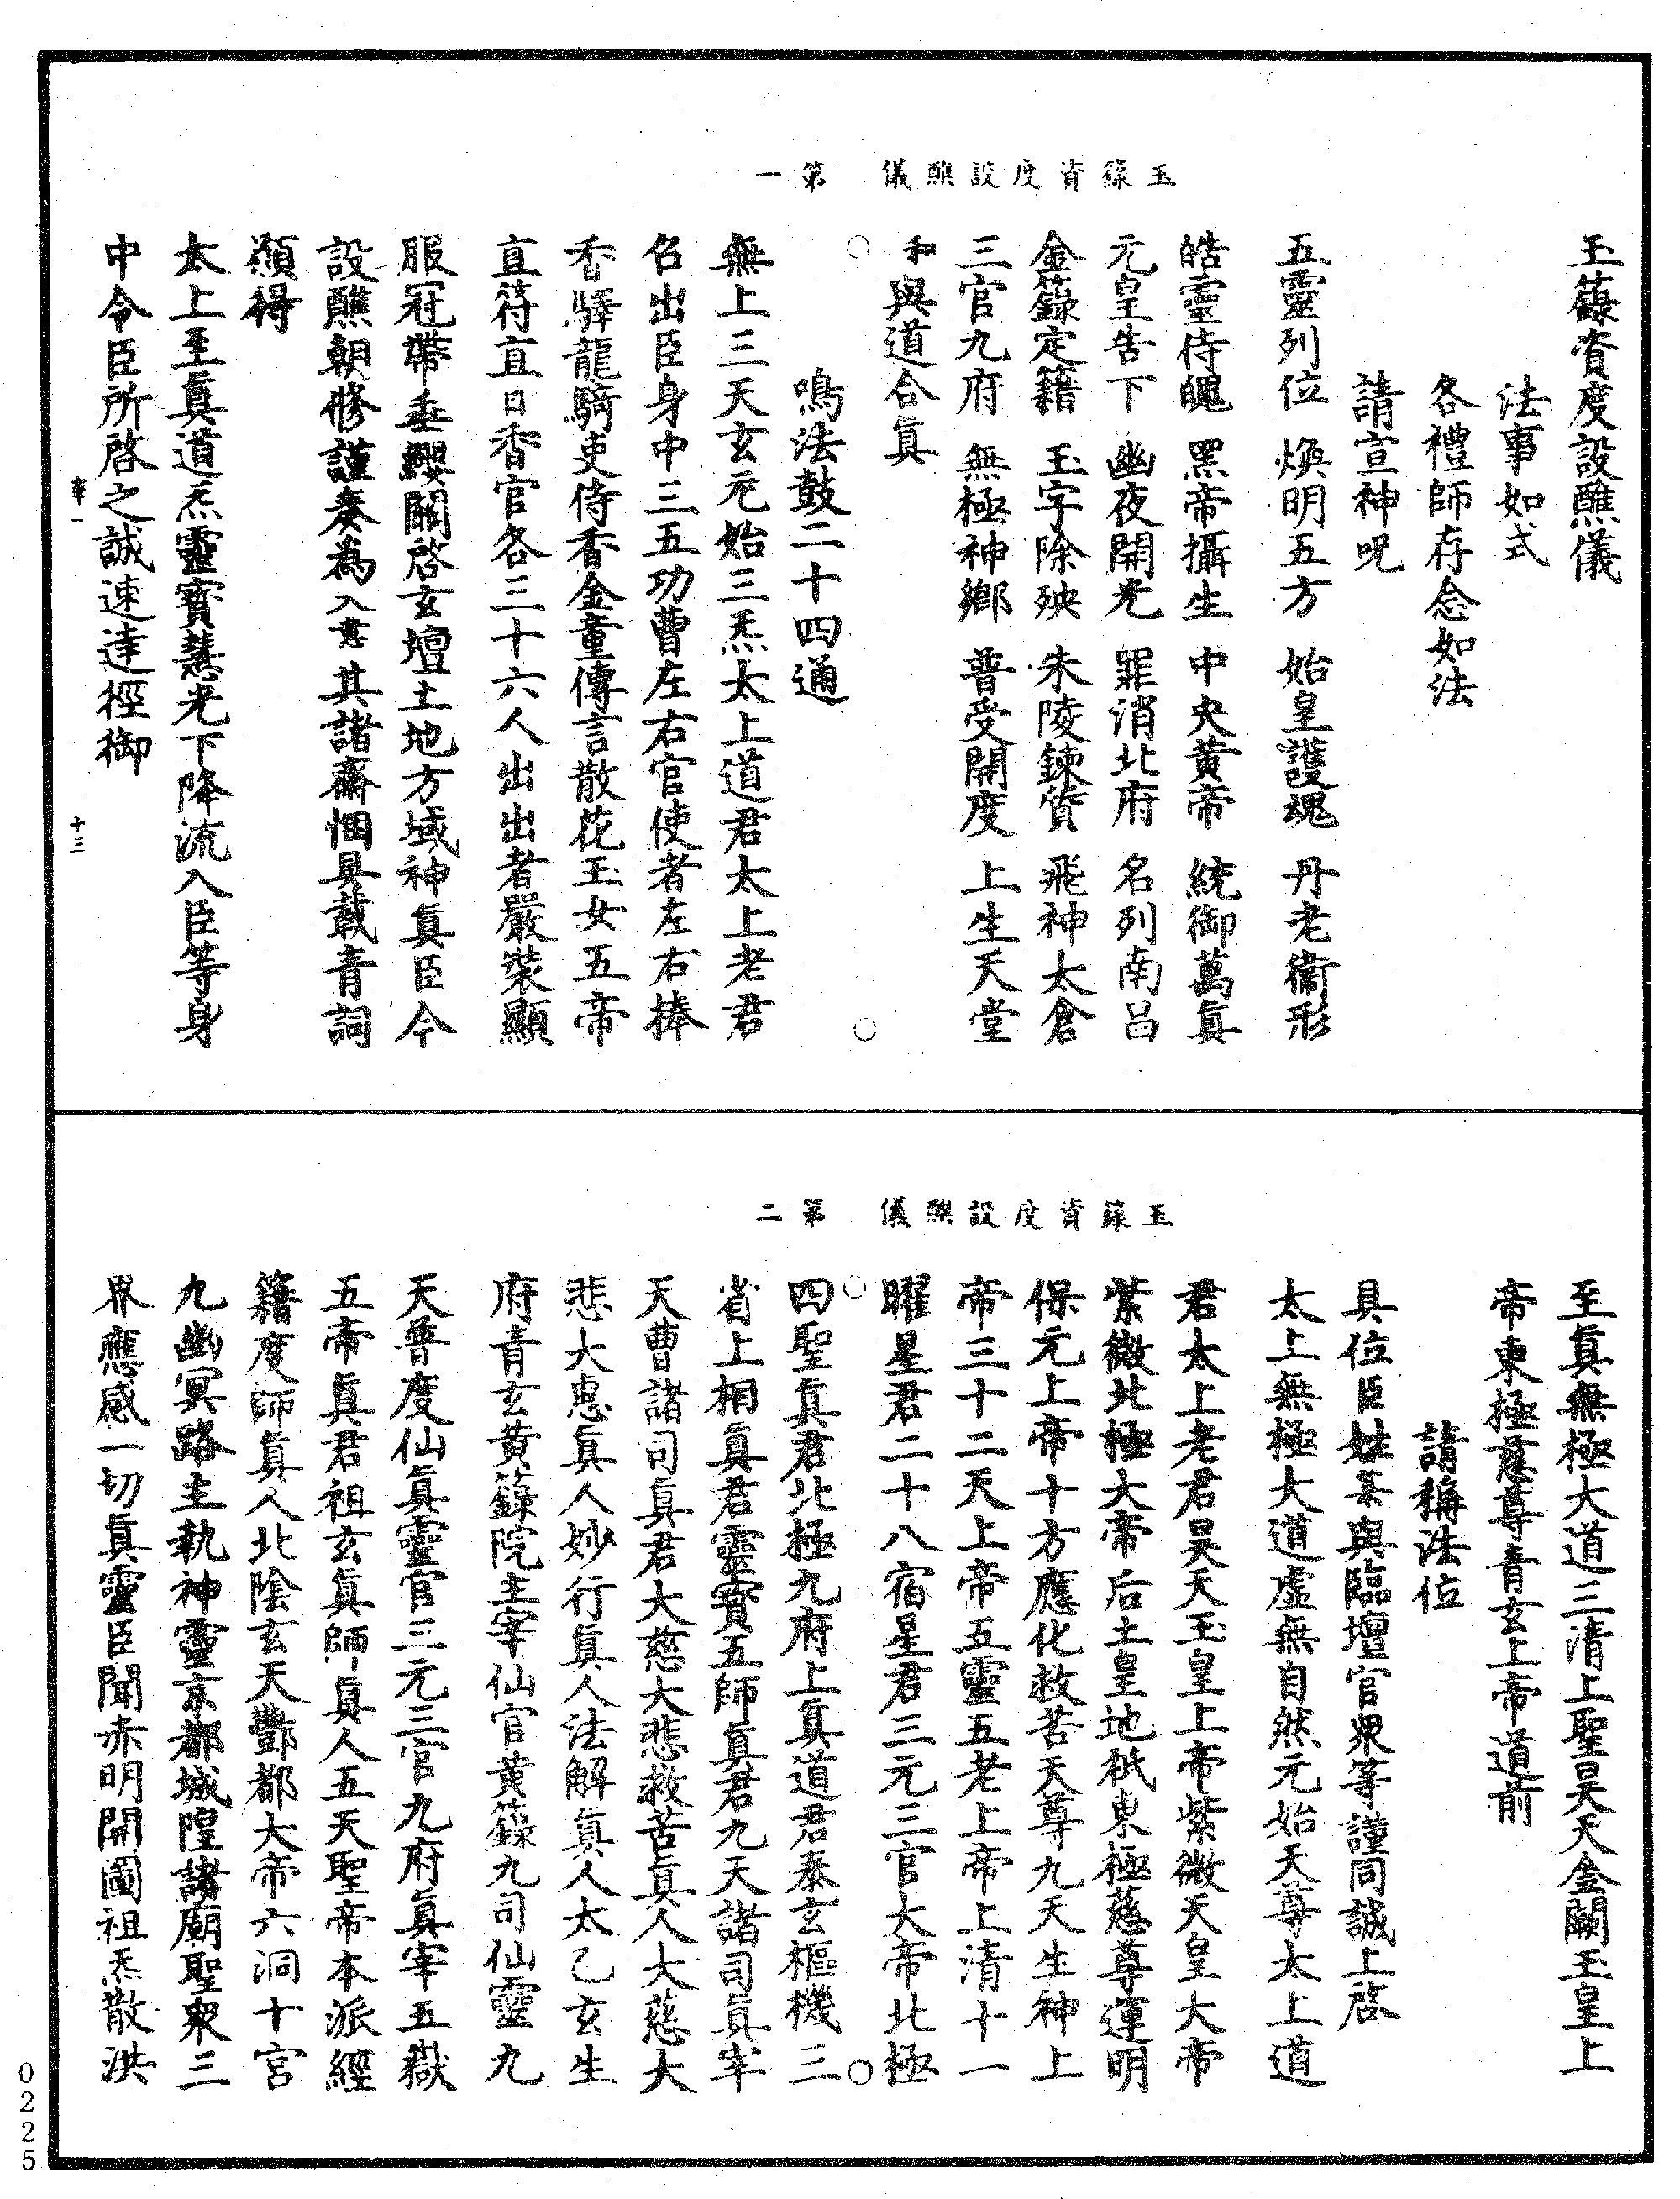 玉籙資度設醮儀　第一
玉籙資度設醮儀
法事如式
各禮師存念如法
請宣神呪
五靈列位　煥明五方　始皇護魂　丹老衞形
皓靈侍魄　黑帝攝生　中央黃帝　統御萬眞
元皇告下　幽夜開光　罪消北府　名列南呂
金籙定籍　玉字除殃　朱陵鍊質　飛神太倉
三官九府　無極神鄉　普受開度　上生天堂
和與道合眞
鳴法鼓二十四通
無上三天玄元始三炁太上道君太上老君
召出臣身中三五功曹左右官使者左右捧
香驛龍騎吏侍香金童傳言散花玉女五帝
直符直日香官各三十六人出出者嚴裝顯
服冠帶垂纓關啓玄壇土地方域神眞臣今
設醮朝修謹奏爲入意其諸齋悃具載青詞
願得
太上至眞道炁靈寶慧光下降流入臣等身
中令臣所啓之誠速達徑御
華一　十三
玉籙資度設醮儀　第二
至眞無極大道三清上聖昊天金闕玉皇上
帝東極慈尊青玄上帝道前
請稱法位
具位臣姓某與臨壇官衆等謹同誠上啓
太上無極大道虛無自然元始天尊太上道
君太上老君昊天玉皇上帝紫微天皇大帝
紫微北極大帝后土皇地祇東極慈尊運明
保元上帝十方應化救苦天尊九天生神上
帝三十二天上帝五靈五老上帝上清十一
曜星君二十八宿星君三元三官大帝北極
四聖眞君北極九府上眞道君泰玄樞機三
省上相眞君靈寶五師眞君九天諸司眞宰
天曹諸司眞君大慈大悲救苦眞人大慈大
悲大惠眞人妙行眞人法解眞人太乙玄生
府青玄黃籙院主宰仙官黃籙九司仙靈九
天普度仙眞靈官三元三官九府眞宰五嶽
五帝眞君祖玄眞師眞人五天聖帝本派經
籍度師眞人北陰玄天酆都大帝六洞十宮
九幽冥路主執神靈京都城隍諸廟聖衆三
界應感一切眞靈臣聞赤明開圖祖炁散洪
0225